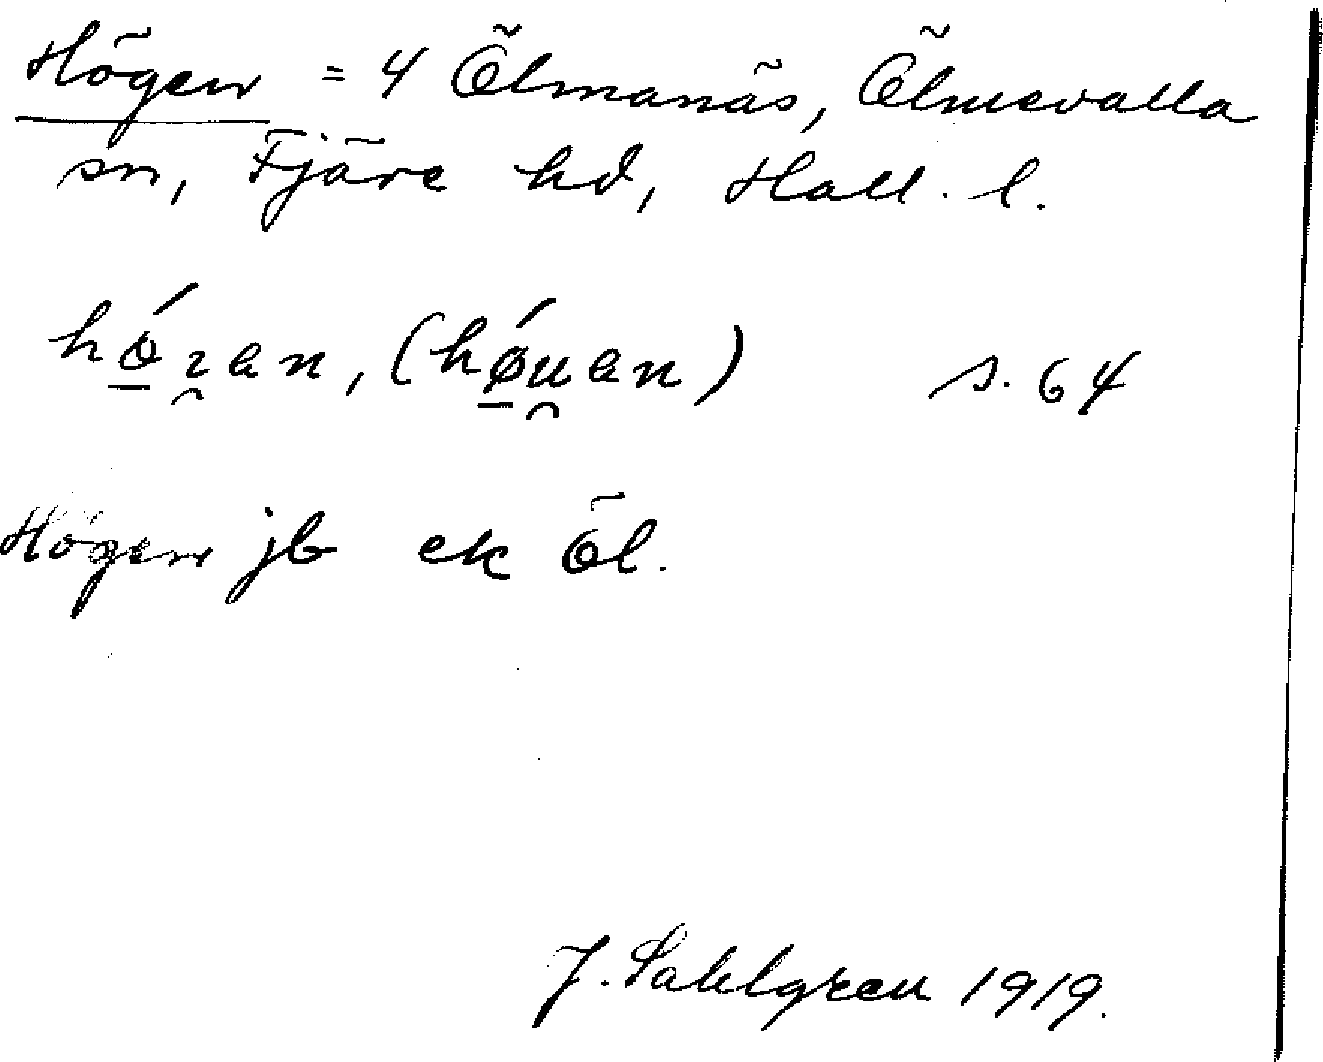 Högen = 4 Ölmanäs, Ölmevalla
sn, Fjäre hd, Hall. l.
s. 64
Högen jb ek Öl.
J. Sahlgren 1919.